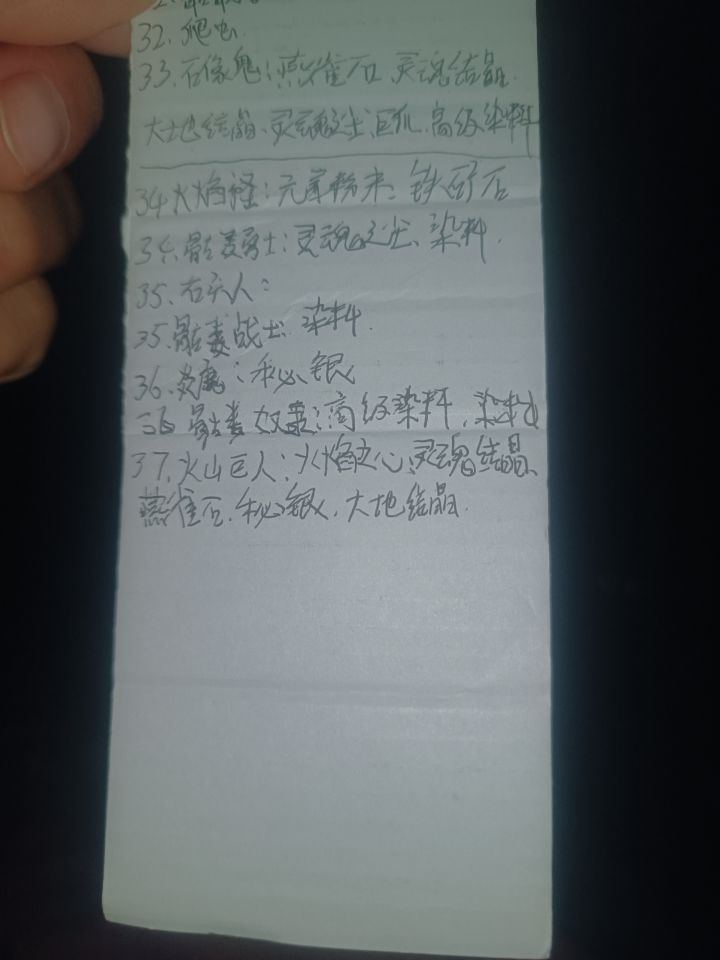 32. 爬虫.
33. 石像鬼: 燕雀石 灵魂结晶.
大地结晶、灵魂之尘 巨爪、高级染料
34 火焰怪: 元素粉末、铁矿石
35. 骷髅勇士: 灵魂之尘、染料.
35. 石头人:
35. 骷髅战士: 染料.
36. 炎魔: 秘银
36 骷髅奴隶: 高级染料、染料
37. 火山巨人: 火焰之心、灵魂结晶、
燕雀石、秘银、大地结晶.